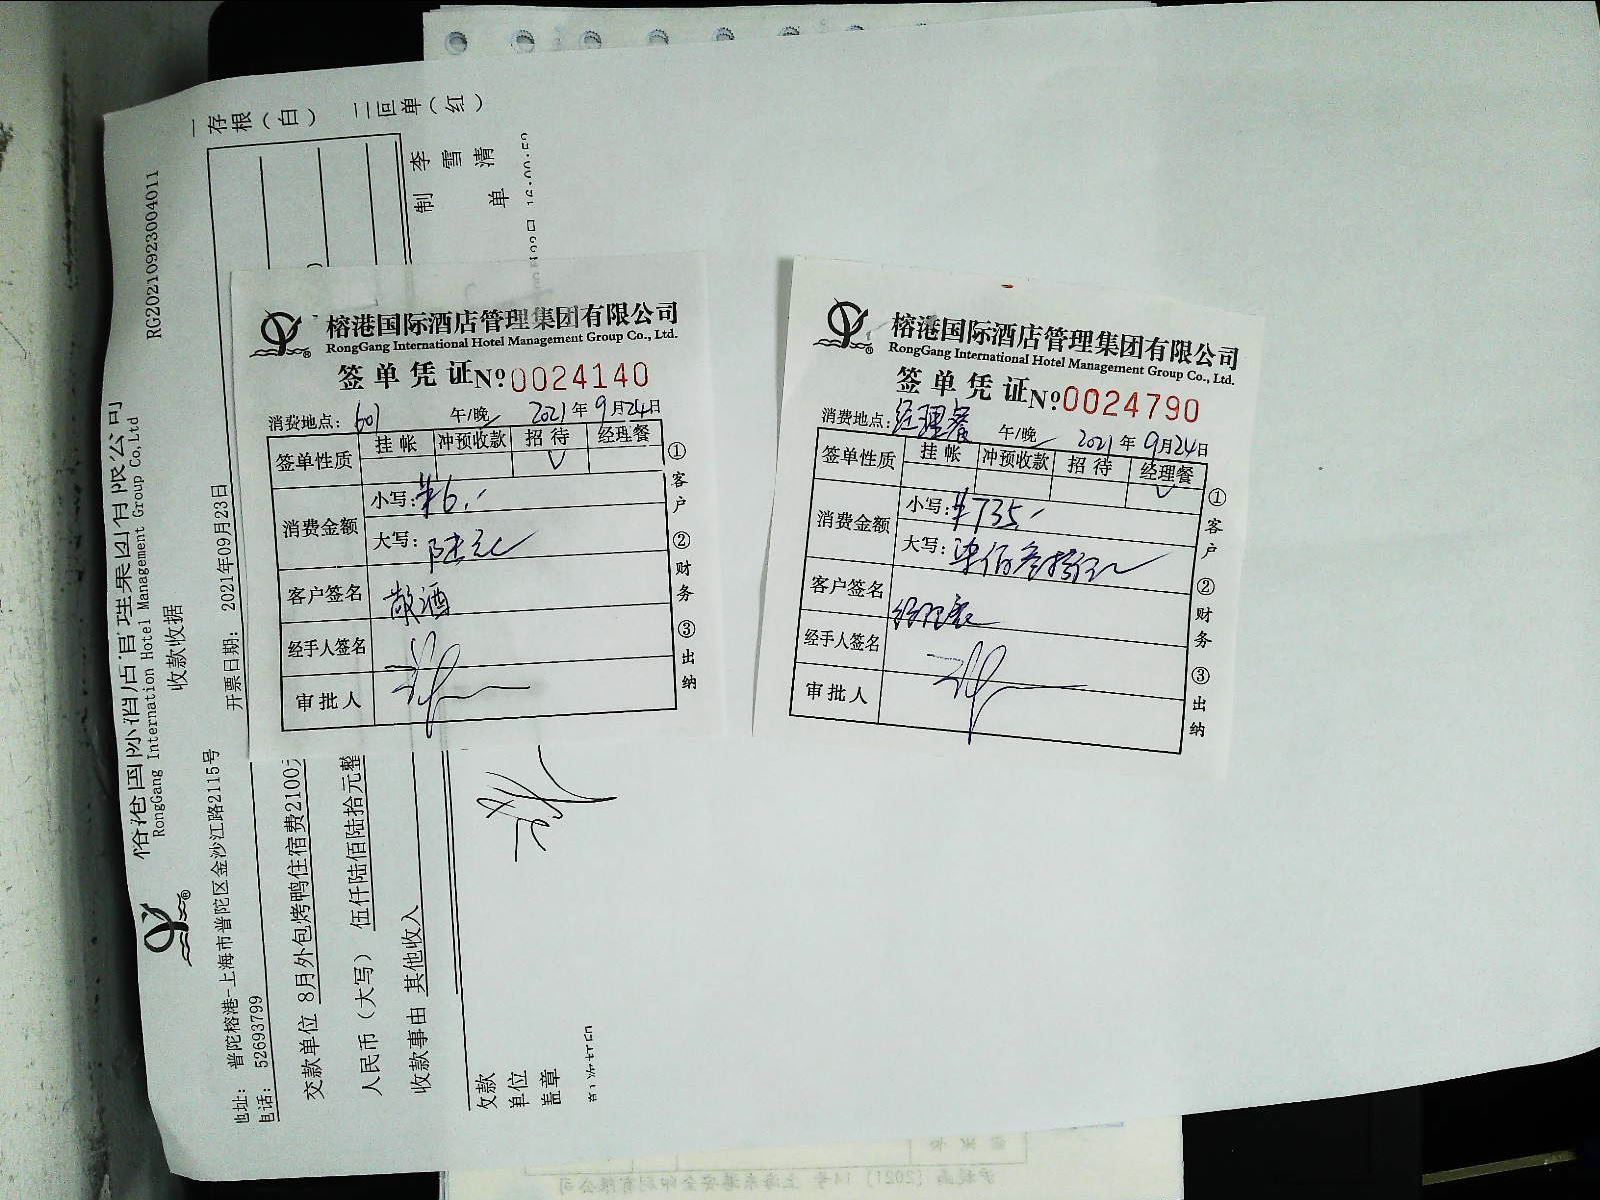 一存根（白） 二回单（红）
RongGang Internation Hotel Management Group Co,Ltd
收款收据
RG20210923004011
地址: 普陀榕港-上海市普陀区金沙江路2115号
开票日期: 2021年09月23日
电话: 52693799
交款单位 8月外包烤鸭住宿费2100
人民币（大写） 伍仟陆佰陆拾元整
收款事由 其他收入
欠款
单位
盖章
制单
李雪清
榕港国际酒店管理集团有限公司
RongGang International Hotel Management Group Co., Ltd.
签单凭证 №0024140
消费地点: 601 午/晚 2021年9月24日
签单性质 挂帐 冲预收款 招待 经理餐
消费金额 小写: ¥6.-
大写: 陆元
客户签名 敬酒
经手人签名
审批人
①客户 ②财务 ③出纳
榕港国际酒店管理集团有限公司
RongGang International Hotel Management Group Co., Ltd.
签单凭证 №0024790
消费地点: 经理餐 午/晚 2021年9月24日
签单性质 挂帐 冲预收款 招待 经理餐
消费金额 小写: ¥735.-
大写:
客户签名 经理餐
经手人签名
审批人
①客户 ②财务 ③出纳